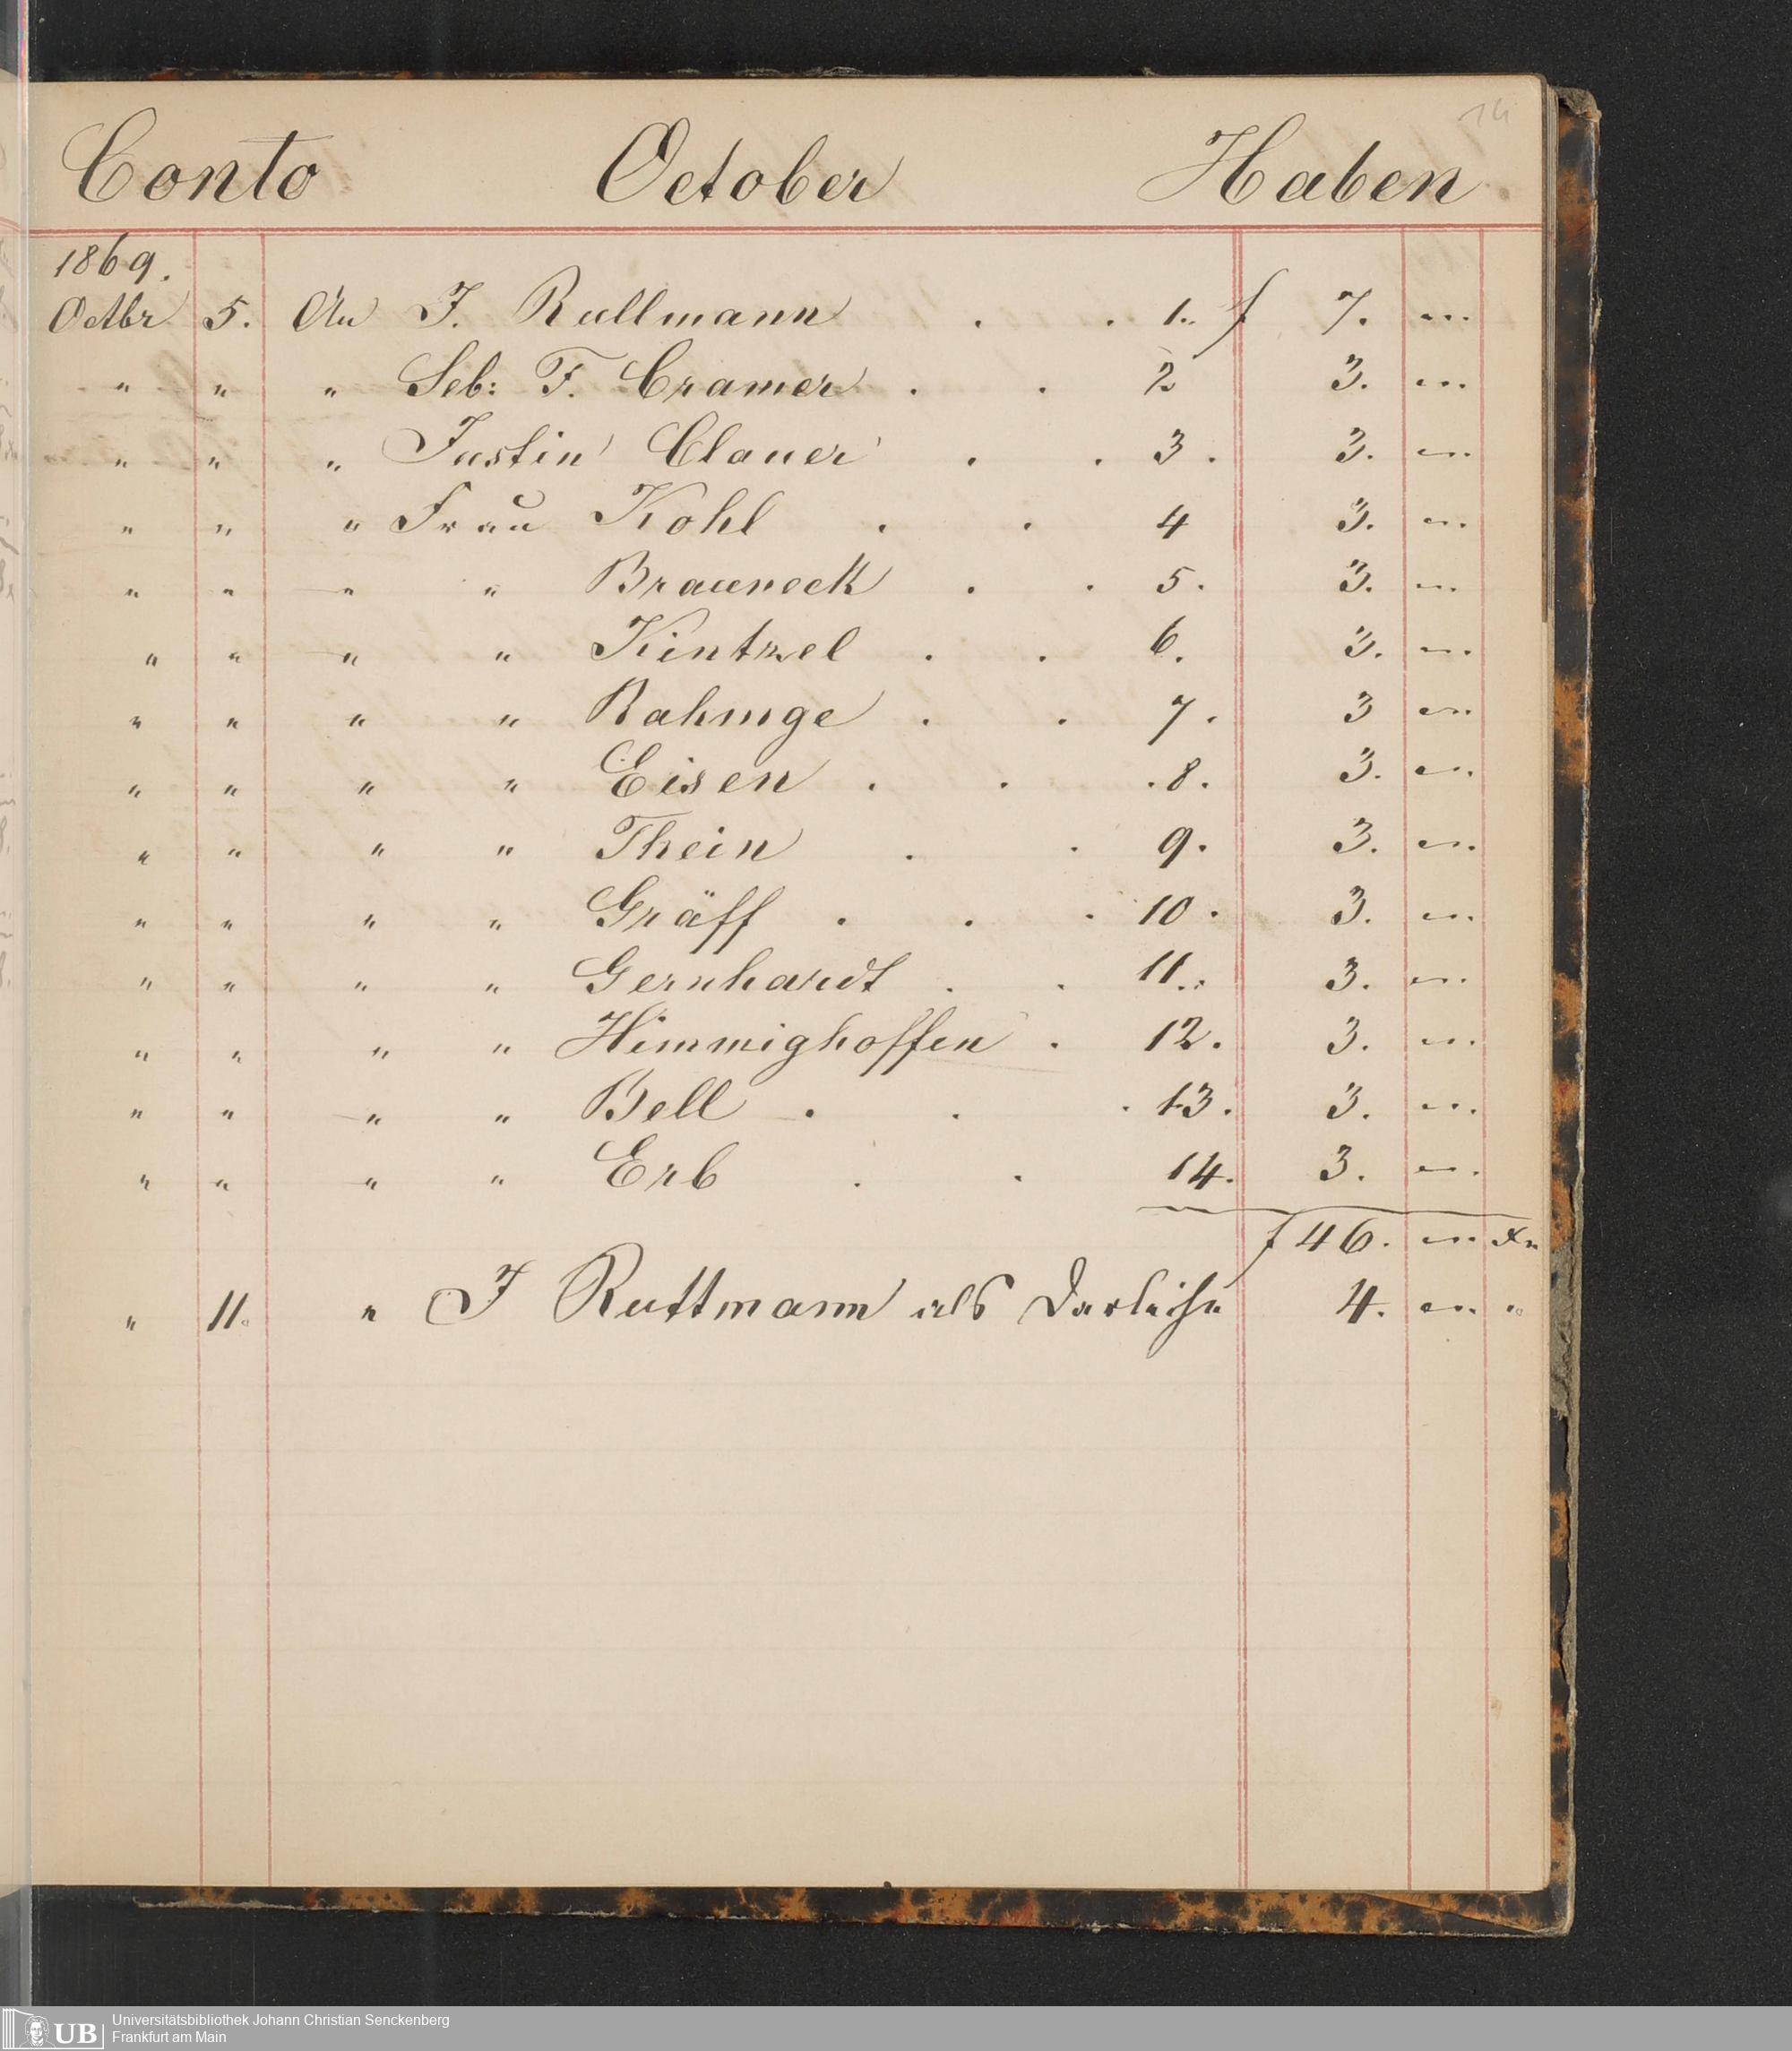 14
Conto October Haben
1869.
Octbr 5. An J. Rullmann . . 1. f 7. "
" " " Seb: F. Cramer . . 2 3. "
" " " Justin Clauer . . 3. 3. "
" " " Frau Kohl . . 4 3. "
" " " " Brauneck . . 5. 3. "
" " " " Kintzel . . 6. 3. "
" " " " Rahmge . . 7. 3 "
" " " " Eisen . . . 8. 3. "
" " " " Thein . . 9. 3. "
" " " " Gräff . . . 10. 3. "
" " " " Gernhardt . . 11. 3. "
" " " " Himmighoffen . 12. 3. "
" " " " Bell . . . 13. 3. "
" " " " Erb . . 14. 3. "
f 46. " xr
" 11. " J Ruttmann als Darleihe 4. " "
UB Universitätsbibliothek Johann Christian Senckenberg
Frankfurt am Main